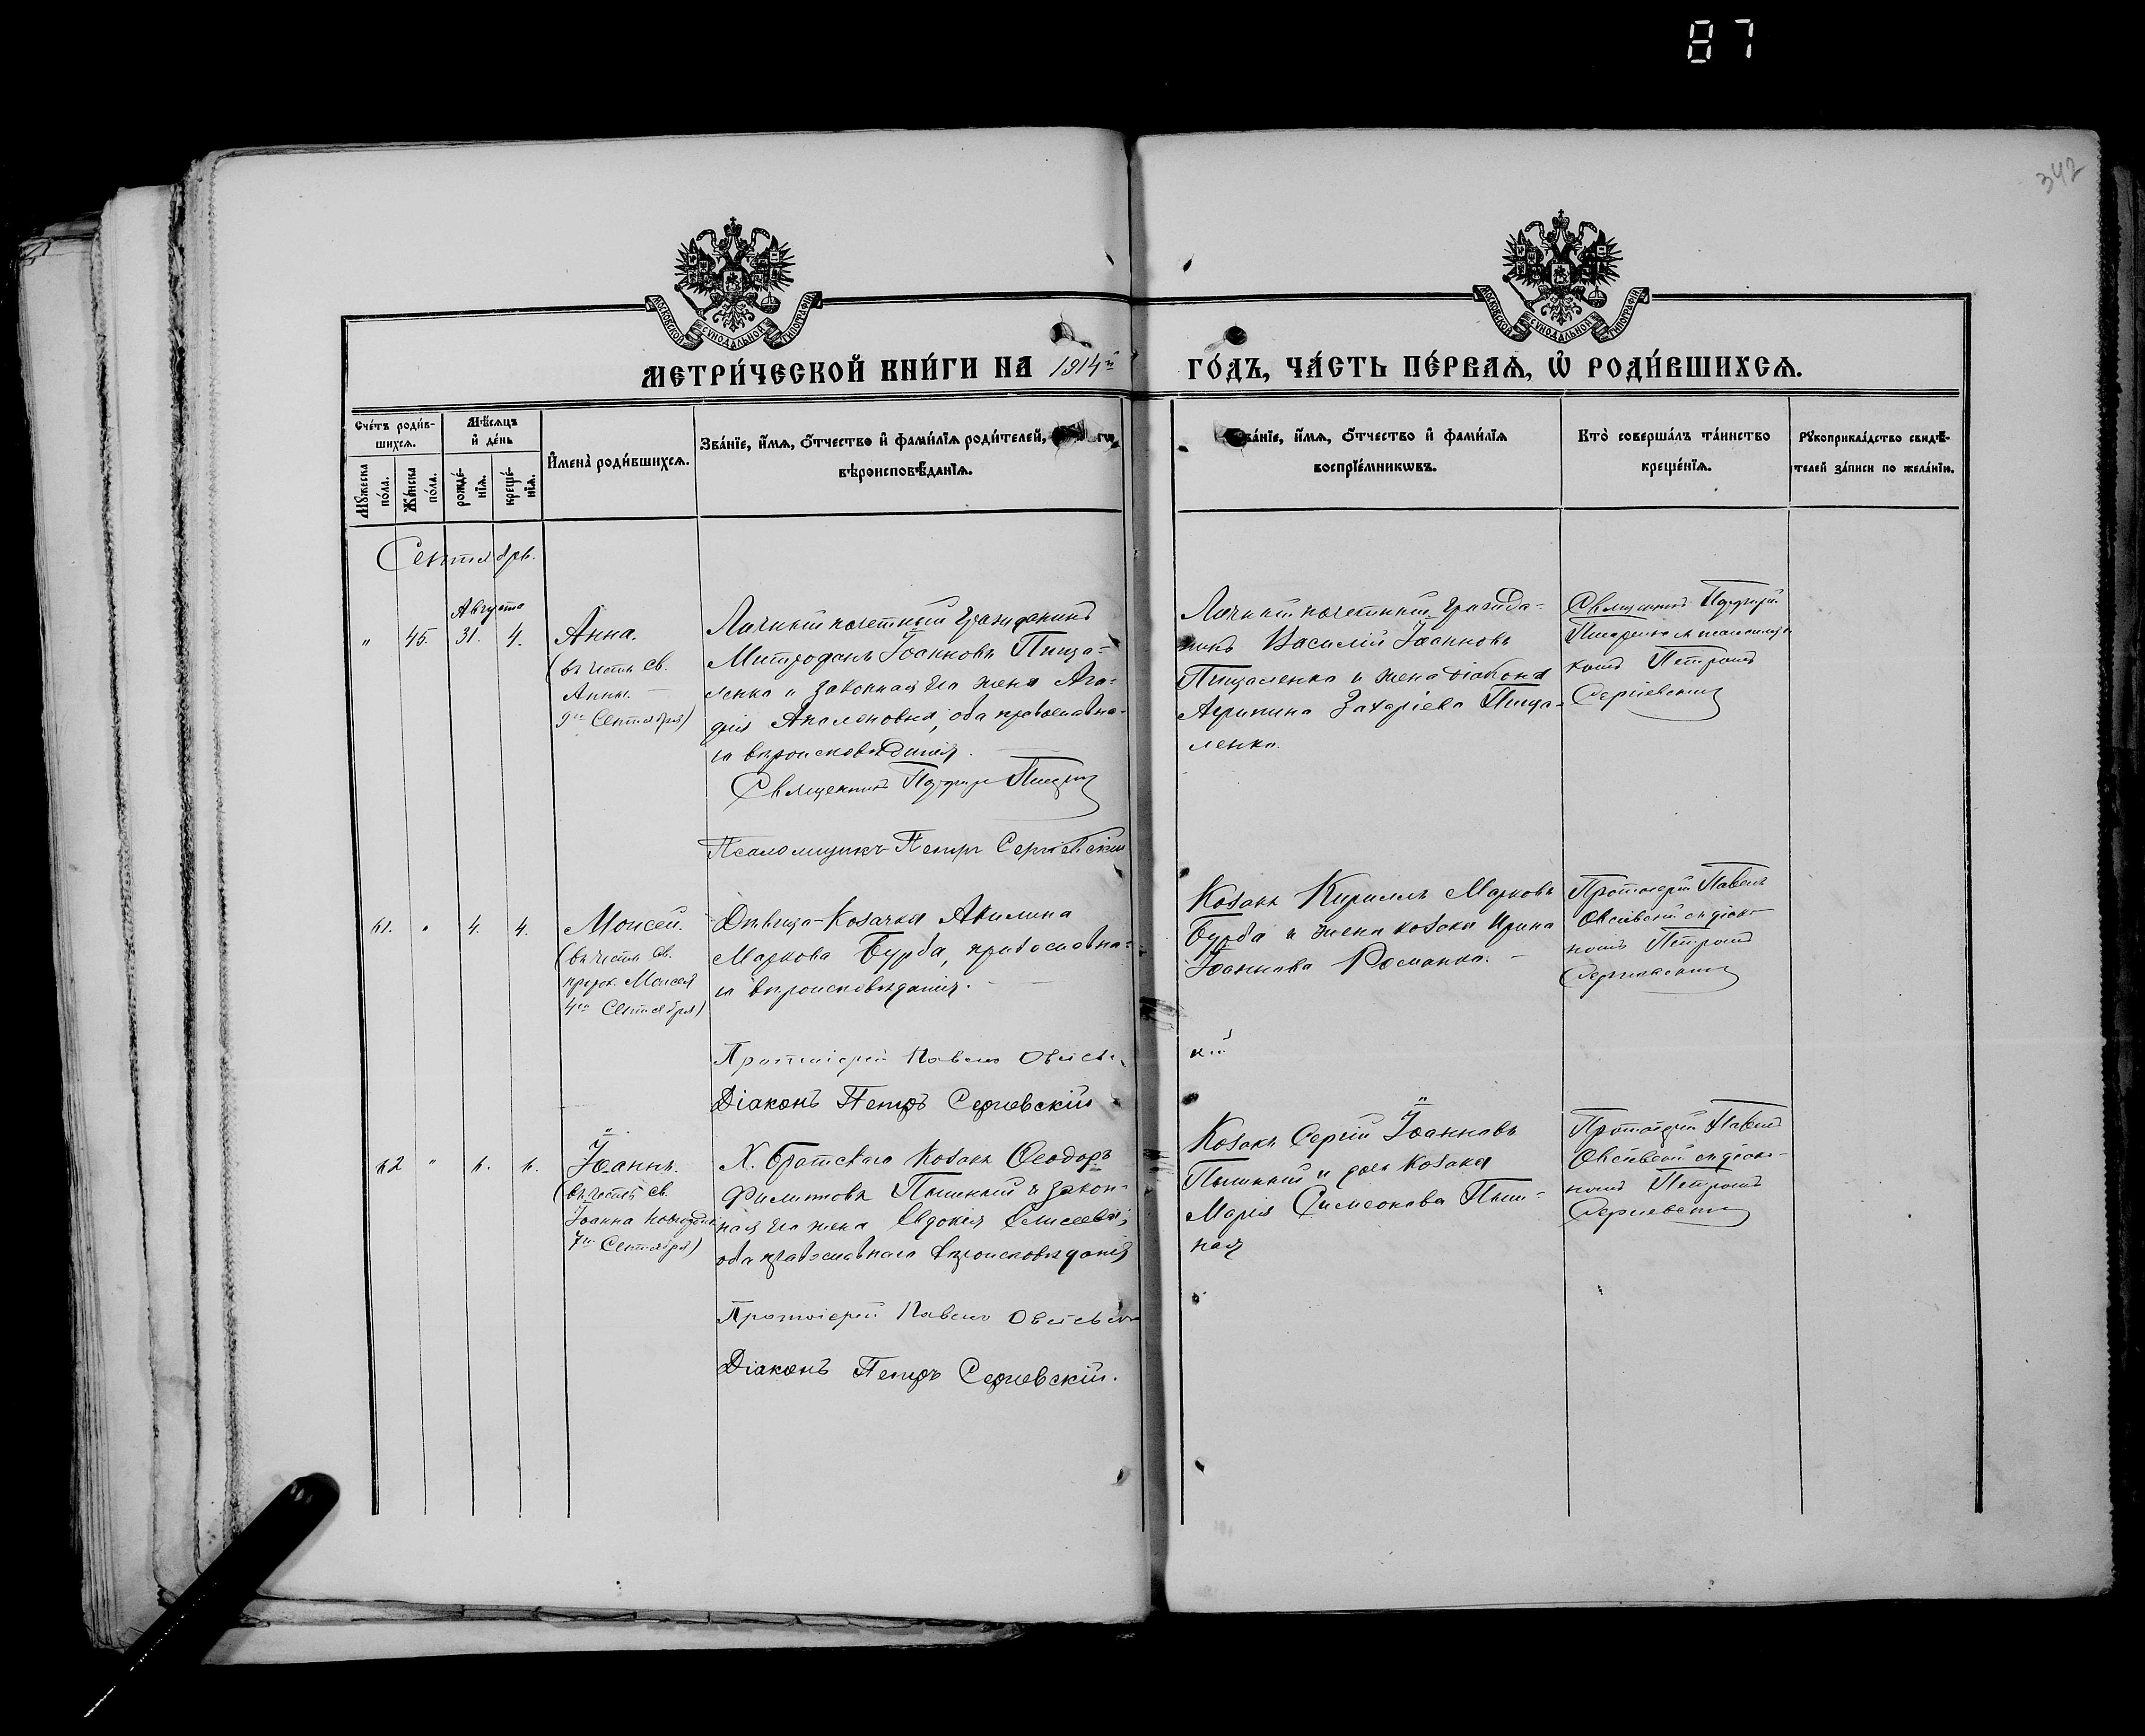 87
342
МОСКОВСКОЙ СѴНОДАЛЬНОЙ ТИПОГРАФІИ
МОСКОВСКОЙ СѴНОДАЛЬНОЙ ТИПОГРАФІИ
МЕТРИ́ЧЕСКОЙ КНИ́ГИ НА 1914й
ГО́ДЪ, ЧА́СТЬ ПЕ́РВАѦ, Ѡ҆ РОДИ́ВШИХСѦ.
Сче́тъ роди́в-
шихсѧ.
Мꙋ́жеска
по́ла.
Же́нска
по́ла.
Мѣ́сѧцъ
и҆ де́нь
рожде́-
нїѧ.
креще́-
нїѧ.
И҆мена̀ роди́вшихсѧ.
Зва́нїе, и҆́мѧ, ѻ҆́тчество и҆ фами́лїѧ роди́телей,
вѣроисповѣ́данїѧ.
Зва́нїе, и҆́мѧ, ѻ҆́тчество и҆ фами́лїѧ
воспрїе́мникѡвъ.
Кто̀ соверша́лъ та́инство
креще́нїѧ.
Рꙋкоприкла́дство свидѣ́-
телей за́писи по жела́нїю.
Сентябрь.
Августа
" 45. 31. 4.
Анна.
(въ честь св.
Анны.
9го Сентября)
Личный почетный гражданинъ
Митрофанъ Іоанновъ Пища-
ленко и законная его жена
оба православна-
го вѣроисповѣданія.
Священникъ
Псаломщикъ Петръ Сергіевскій
Личный почетный гражда-
нинъ Василій Іоанновъ
Пищаленко и жена діакона
Агрипина Захаріева Пища-
ленко.
Священникъ
Петромъ
Сергіевскимъ
61. " 4. 4.
Моисей.
(въ честь св.
прор. Моисея
4го Сентября)
Дѣвица-козачка Акилина
Маркова Бурба, православна-
го вѣроисповѣданія.
Протоіерей Павелъ Овсіев-
кій
Діаконъ Петръ Сергіевскій
Козакъ Кириллъ Марковъ
Бурба и жена козака Ирина
Іоаннова Романко.
Протоіерей Павелъ
Овсіевскій съ діако-
номъ Петромъ
Сергіевскимъ
62 " 6. 6.
Іоаннъ.
(въ честь св.
Іоанна
7го Сентября)
Х. Братскаго козакъ Ѳеодоръ
Филиповъ Пышный и закон-
ная его жена Евдокія Елисеева,
оба православнаго вѣроисповѣданія
Протоіерей Павелъ Овсіевскій
Діаконъ Петръ Сергіевскій.
Козакъ Сергій Іоанновъ
Пышный и дочь козака
Марія Симеонова Пыш-
ная
Протоіерей Павелъ
Овсіевскій съ діако-
номъ Петромъ
Сергіевскимъ